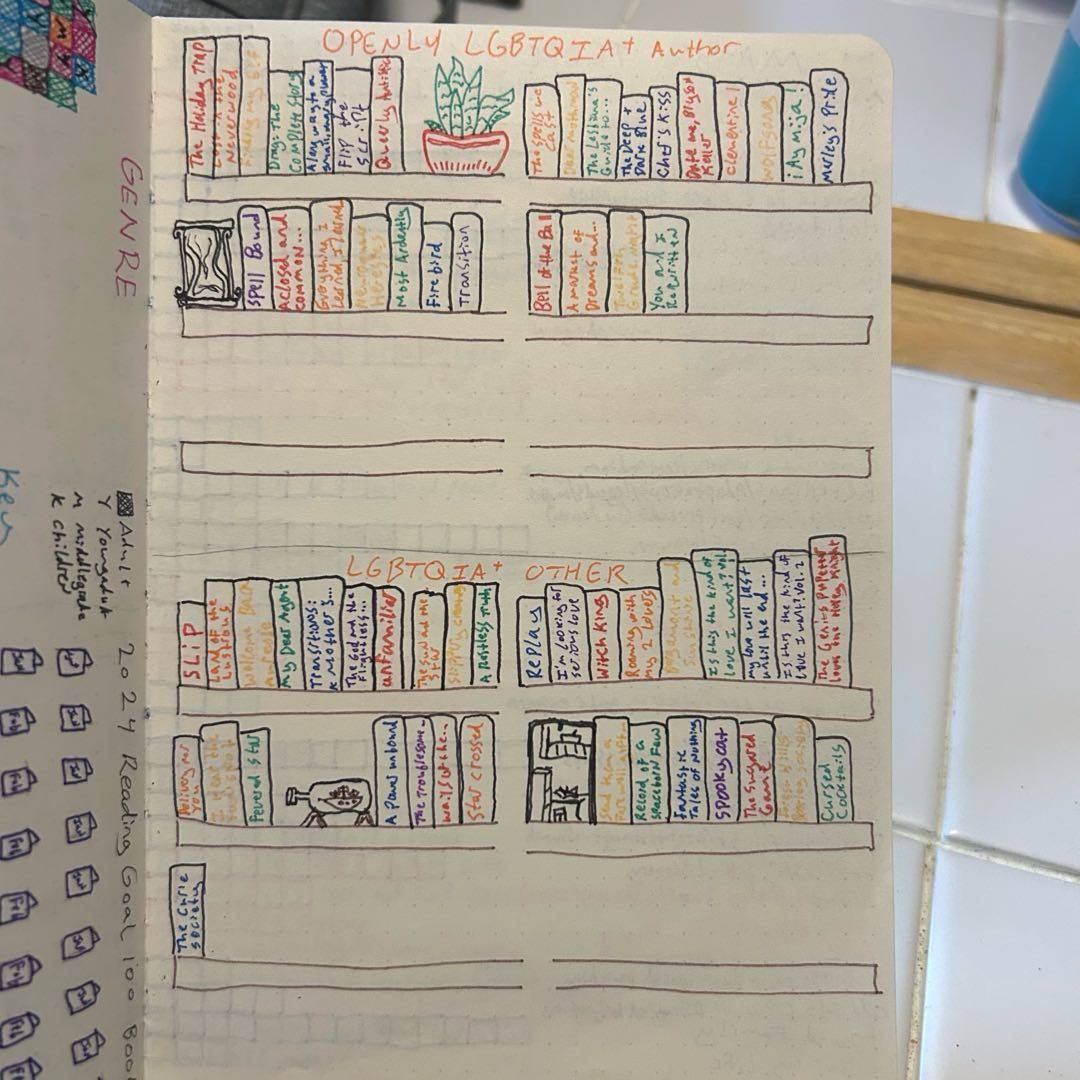 OPENLY LGBTQIA+ Author
The Holiday Trap
Lost in the
Neverwood
Finding my Elf
Drag: the
Complete story
A long way to a
small, angry planet
Flip the
script
Queerly Autistic
The Spells we
cast
Dear mothman
The Lesbiana's
Guide to...
The Deep &
Dark Blue
Chef's Kiss
Date me, Bryson
Keller
Clementine 1
Wolfsong
¡Ay Mija!
Marley's Pride
Spell Bound
A closed and
common...
Everything I
Learned I Learned
Most Ardently
Firebird
Transition
Bell of the Ball
A market of
Dreams and...
Twelfth
You and I
Rewritten
LGBTQIA+ OTHER
SLIP
Land of the
Lustrous
My Dear Agent
Transitions:
A mother's...
The God and the
Flightless...
unfamiliar
The Sun and the
Star
Slippery
A Restless Truth
Replay
I'm looking for
serious love
Witch King
Roaming with
my 2 lovers
Pragmament and
Sunshine
Is this the kind of
love I want? Vol.
my love will last
until the end...
Is this the kind of
love I want vol. 2
The Gentis Puppeteer
Loves the Holey Knight
Delivery for
You
I Hear the
Sunspot
Fevered Star
A Power unbound
The Troublesome..
Wails of the..
Star crossed
Send Him a
Farewell
Record of a
spaceborn Few
Fantastic
Tales of Nothing
Spooky cat
The Sugared
Game
Cursed
Cocktails
The Curie
society
GENRE
Key
Adult
Y Youngadult
M middlegrade
K children
2024 Reading Goal 100 Boo